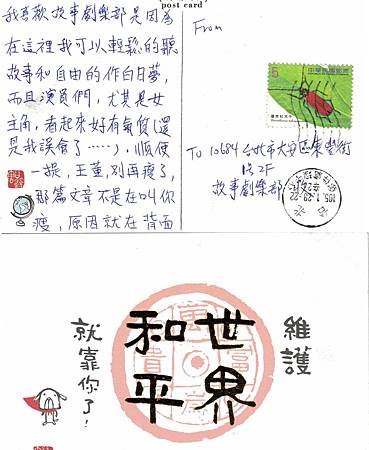 post card
我喜歡故事劇樂部是因為
在這裡我可以輕鬆的聽
故事和自由的作白日夢,
而且演員們,尤其是女
主角,看起來好有氣質(還
是我誤會了……),順便
一提,王董,別再瘦了,
那篇文章不是在叫你
瘦,原因就在背面
From
5
中華民國郵票
To 10684 台北市大安區東豐街
2F
故事劇樂部 收
105.1.28-22
台北
維護
世界
和平
就靠你了!